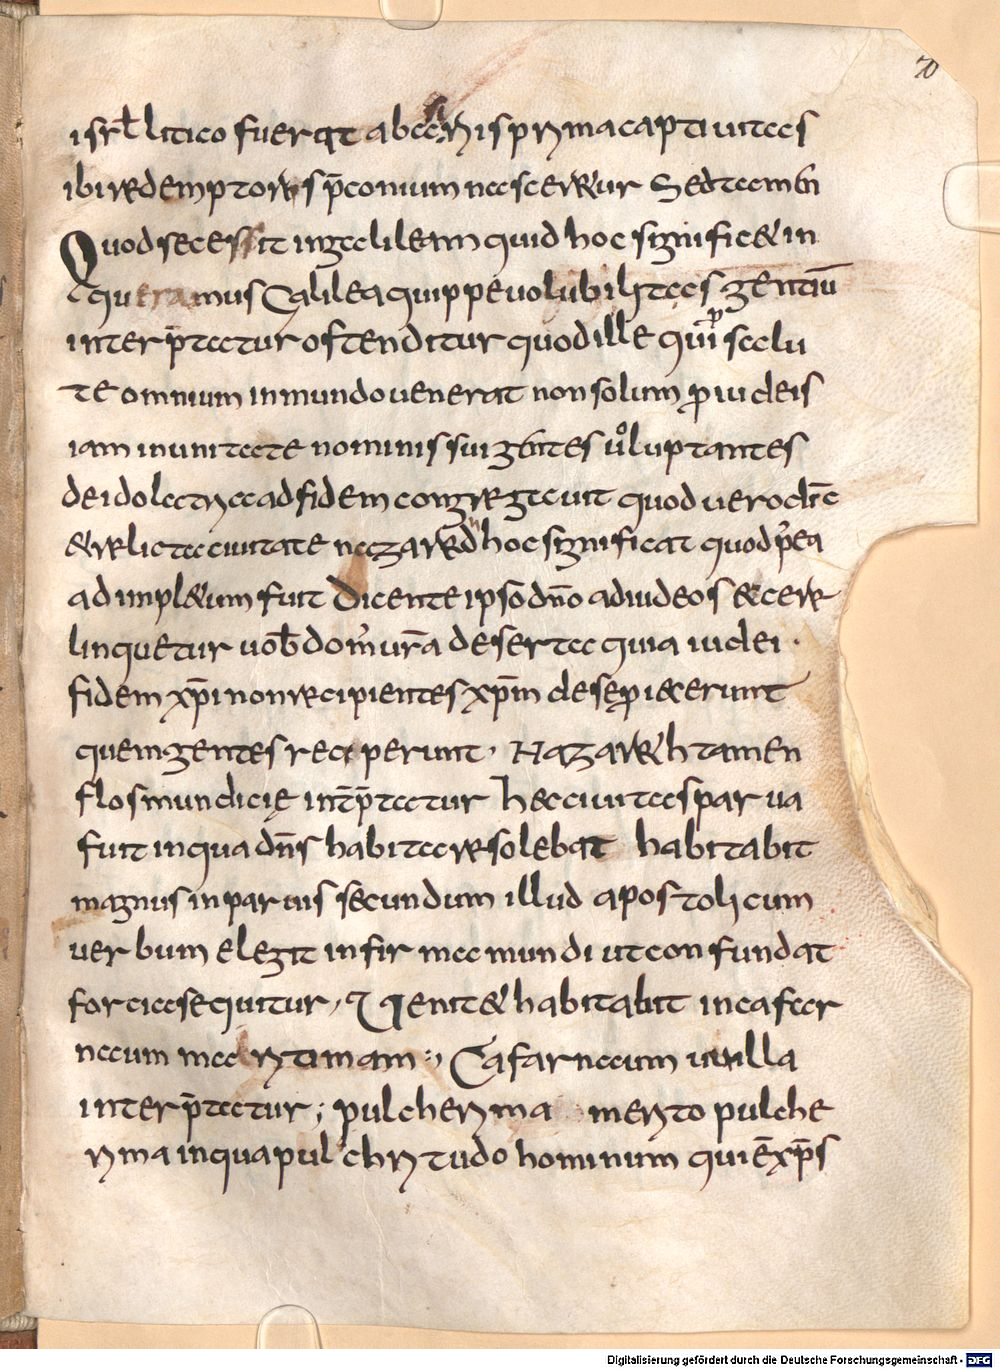 70
isrl̄itico fuerat abas\s/iris prima captiuitas
ibi redemptoris p̄conium nasceretur Sed tam̄
Quod secessit in galileam quid hoc significet in
queramus Galilea quippe uolubilitas gentiū
interp̄tatur ostenditur quod ille qui p̱ salu
te omnium in mundo uenerat non solum p̱ iudeis
iam in unitate nominis sui gentes uoluptantes
de idolatria ad fidem congregauit quod uero dic̄
et relicta ciuitate nazareth hoc significat quod p̱ea
ad impletum fuit Dicente ipso dn̄o ad iudeos ecce re
linquetur uob̄ dom' ur̄a deserta quia iudei ·
fidem xp̄i non recipientes xp̄m de se p̱iecerunt
quem gentes receperunt · Nazareth tamen
flos mundicię int̄p̄tatur haec ciuitas parua
fuit in qua dn̄s habitare solebat habitabit
magnus in paruis secundum illud apostolicum
uerbum elegit infirma mundi ut confundat
forcia sequitur, et uenit et habitabit in cafar
naum maritimam :, Cafarnaum uilla
interp̄tatur ; pulcherrima merito pulche
rrima in qua pulchritudo hominum qui ē xp̄s
Digitalisierung gefördert durch die Deutsche Forschungsgemeinschaft - DFG